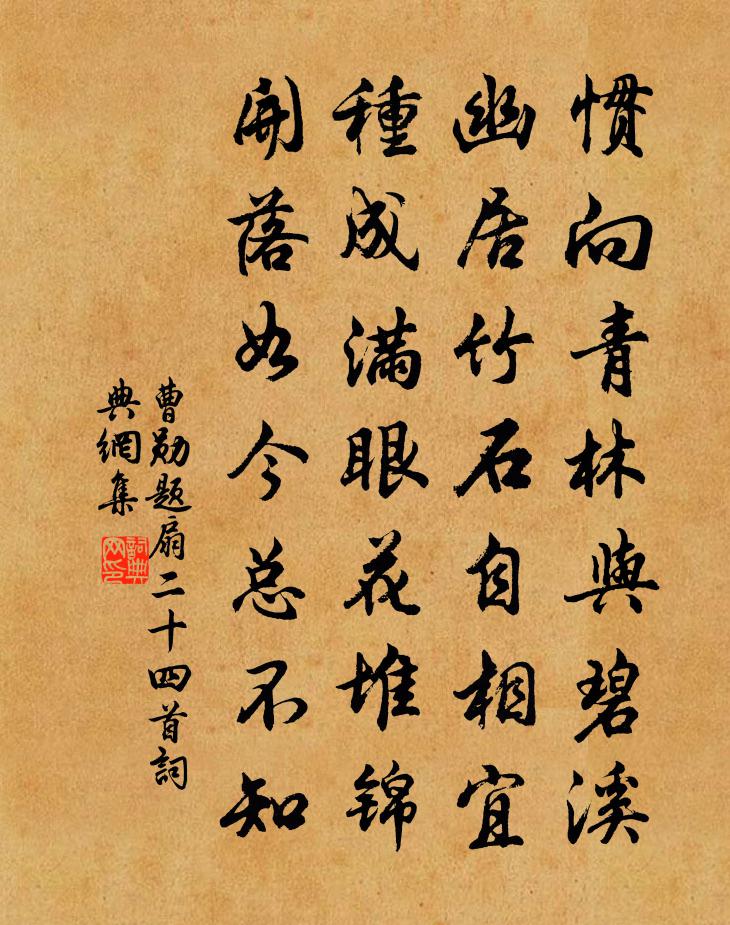 惯向青林與碧溪
幽居竹石自相宜
種成满眼花堆锦
開落如今总不知
曹勋题扇二十四首詞
典網集
詞典
网印